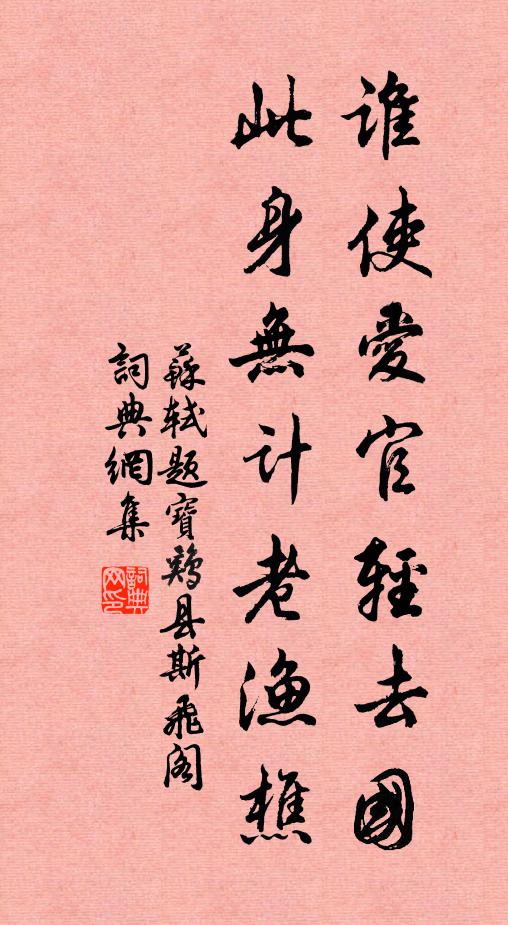 誰使愛官輕去國
此身無計老漁樵
蘇轼题寶鷄县斯飛阁
詞典網集
詞典网印